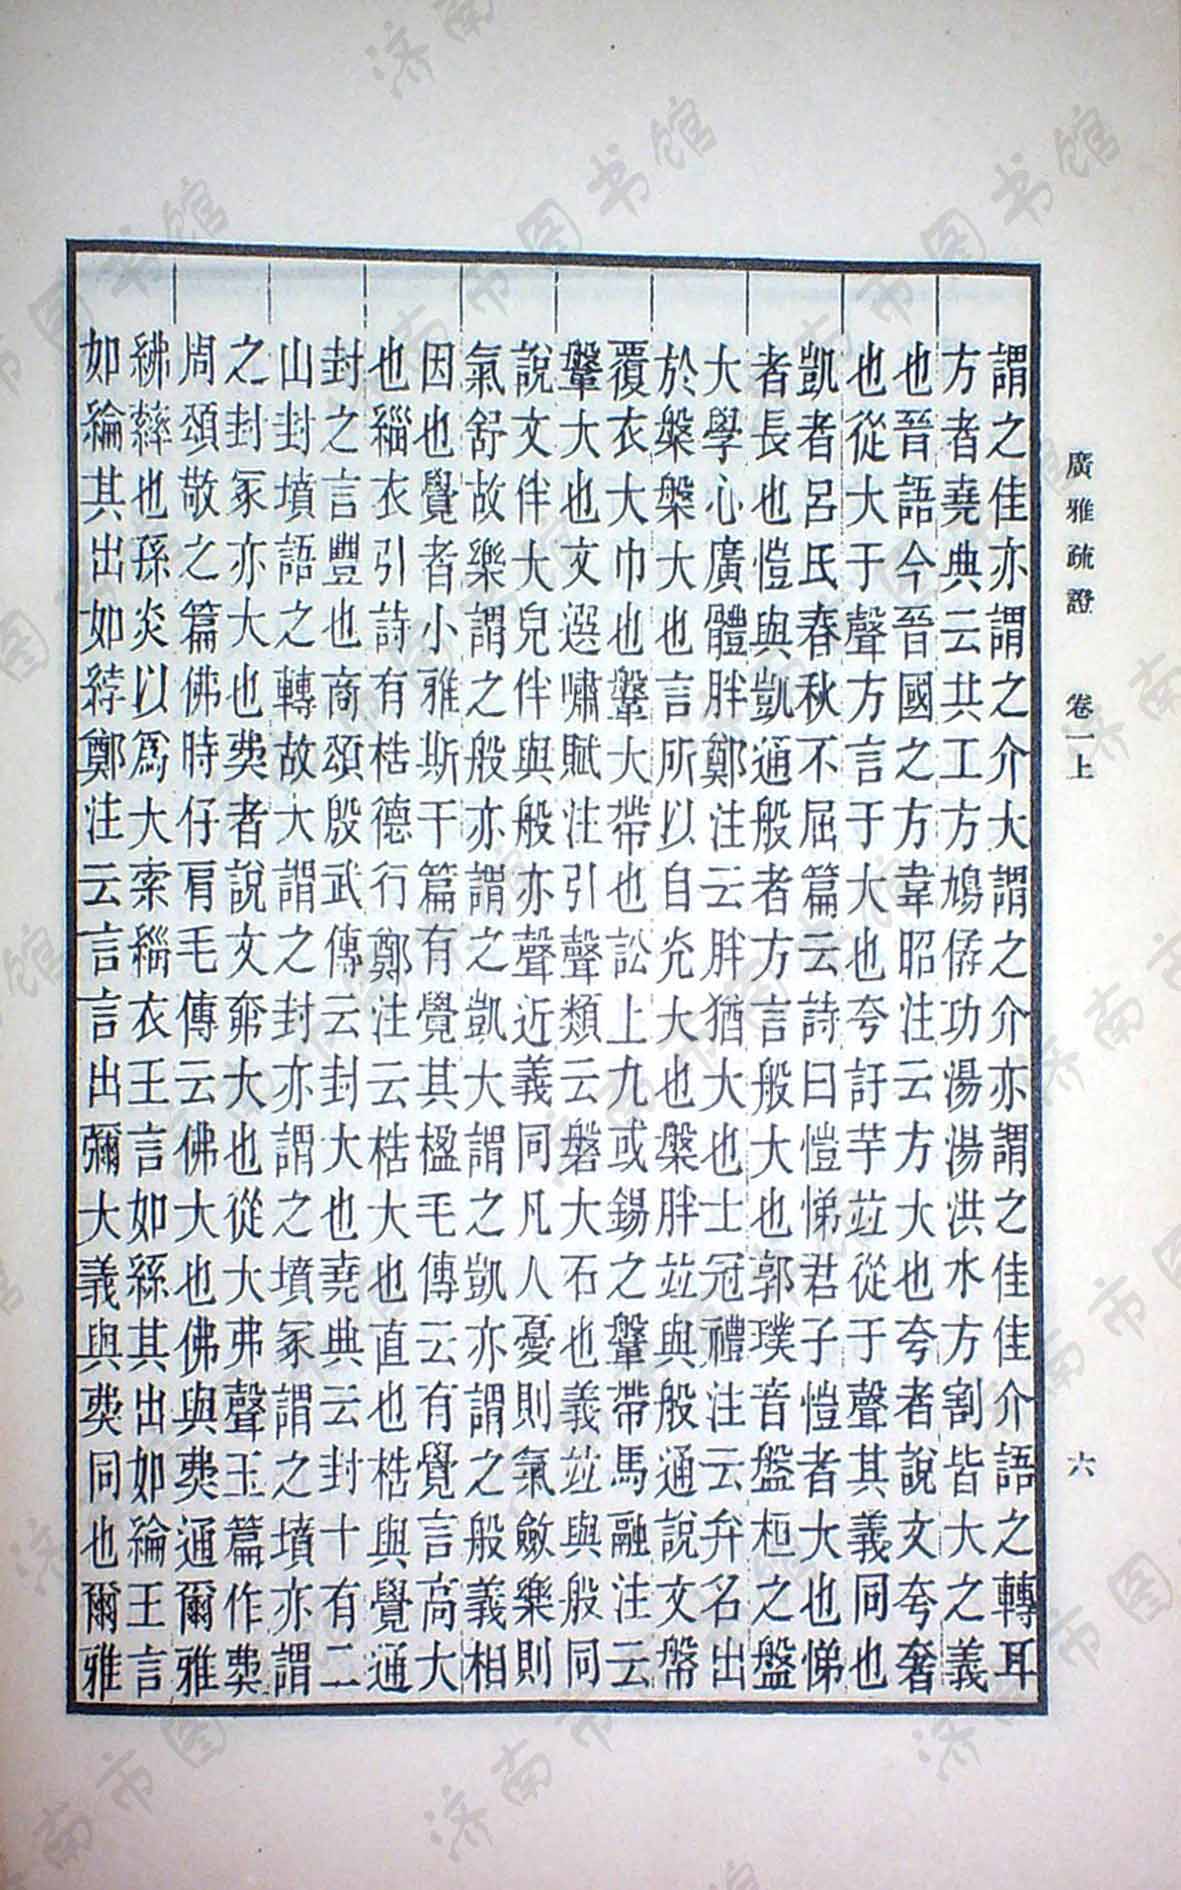 廣雅疏證　卷一上　六
謂之佳亦謂之介大謂之介亦謂之佳佳介語之轉耳
方者堯典云共工方鳩僝功湯湯洪水方割皆大之義
也晉語今晉國之方韋昭注云方大也夸者說文夸奢
也從大于聲方言于大也夸訏芋竝從于聲其義同也
凱者呂氏春秋不屈篇云詩曰愷悌君子愷者大也悌
者長也愷與凱通般者方言般大也郭璞音盤桓之盤
大學心廣體胖鄭注云胖猶大也士冠禮注云弁名出
於槃槃大也言所以自光大也槃胖竝與般通說文幋
覆衣大巾也鞶大帶也訟上九或錫之鞶帶馬融注云
鞶大也文選嘯賦注引聲類云磐大石也義竝與般同
說文伴大皃伴與般亦聲近義同凡人憂則氣斂樂則
氣舒故樂謂之般亦謂之凱大謂之凱亦謂之般義相
因也覺者小雅斯干篇有覺其楹毛傳云有覺言高大
也緇衣引詩有梏德行鄭注云梏大也直也梏與覺通
封之言豐也商頌殷武傳云封大也堯典云封十有二
山封墳語之轉故大謂之封亦謂之墳冢謂之墳亦謂
之封冢亦大也者說文㚕大也從大弗聲玉篇作
周頌敬之篇佛時仔肩毛傳云佛大也佛與通爾雅
紼䋾也孫炎以爲大索緇衣王言如絲其出如綸王言
如綸其出如綍鄭注云言言出彌大義與同也爾雅